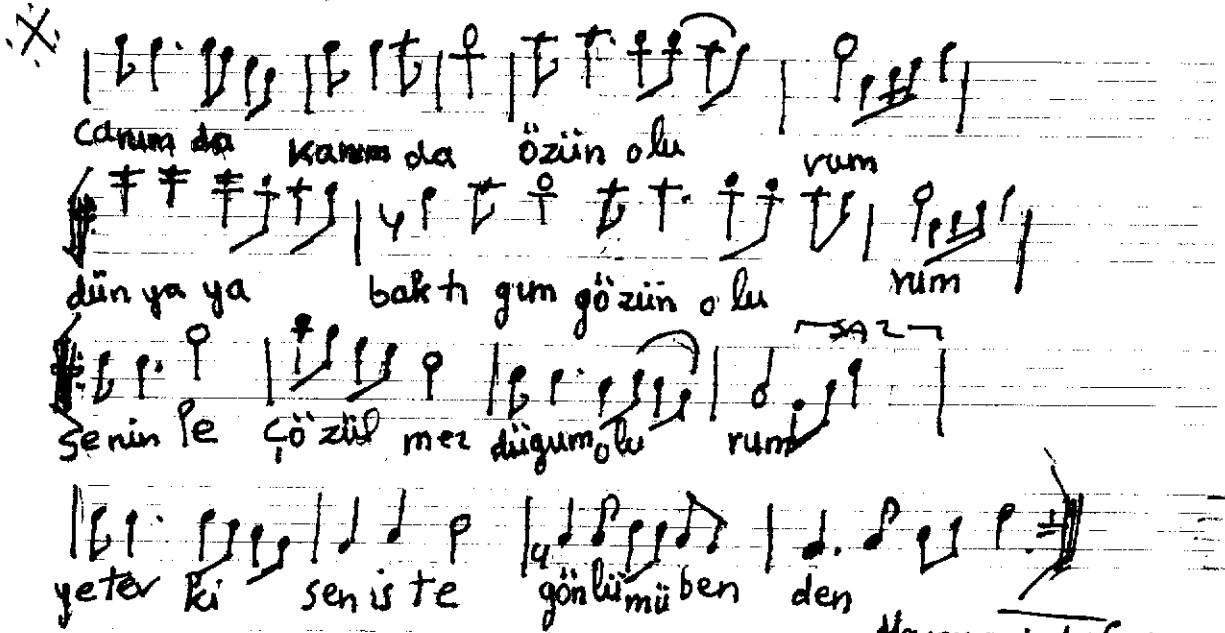 Canım da kanım da özün olu rum
dün ya ya baktı gım gözün olu rum
SAZ
senin le çözül mez dügum olu rum
yeter ki sen is te gönlü mü ben den